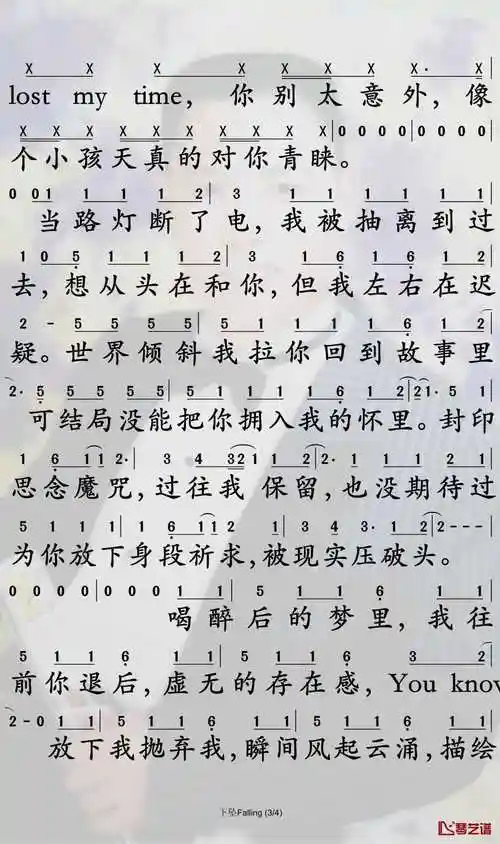 X X X X X X X X X· X X
lost my time, 你别太意外,像
X X X X X X X X X X X X|0 0 0 0|0 0 0 0|
个小孩天真的对你青睐。
0 001 1 1 1 2|3 1 1 1 1 1 1|
当路灯断了电,我被抽离到过
1 0 5 1 1 1 2|1 1 1 6 1 6 1 2|
去,想从头在和你,但我左右在迟
2 - 5 5 5 5|5 1 1 1 1 6 1 2|
疑。世界倾斜我拉你回到故事里
2· 5 5 5 5 5|5 1 1 1 1 6 1 2|21· 5 1|
可结局没能把你拥入我的怀里。封印
1 6 1 1 2·|3 4 3 2 1 2|1 1 2 2 1|
思念魔咒,过往我 保留,也没期待过
5 1 1 1|1 6 1 1 2|3 4 3· 1 2|2---|
为你放下身段祈求,被现实压破头。
0 0 0 0|0 0 0 1|5 1 1 6 1 1|
喝醉后的梦里,我往
5 1 1 6 1 1|5 1 1 6 3 2|
前你退后,虚无的存在感,You know
2-0 1 1|5 1 1 6 1 1|5 1 1 6 1 1|
放下我抛弃我,瞬间风起云涌,描绘
下坠Falling (3/4)
琴艺谱